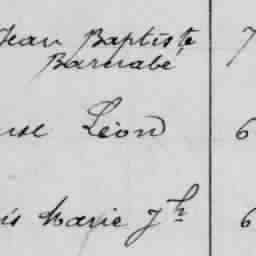 Jean Baptiste 7
Barnabé
Léon 6
Marie Jh 6